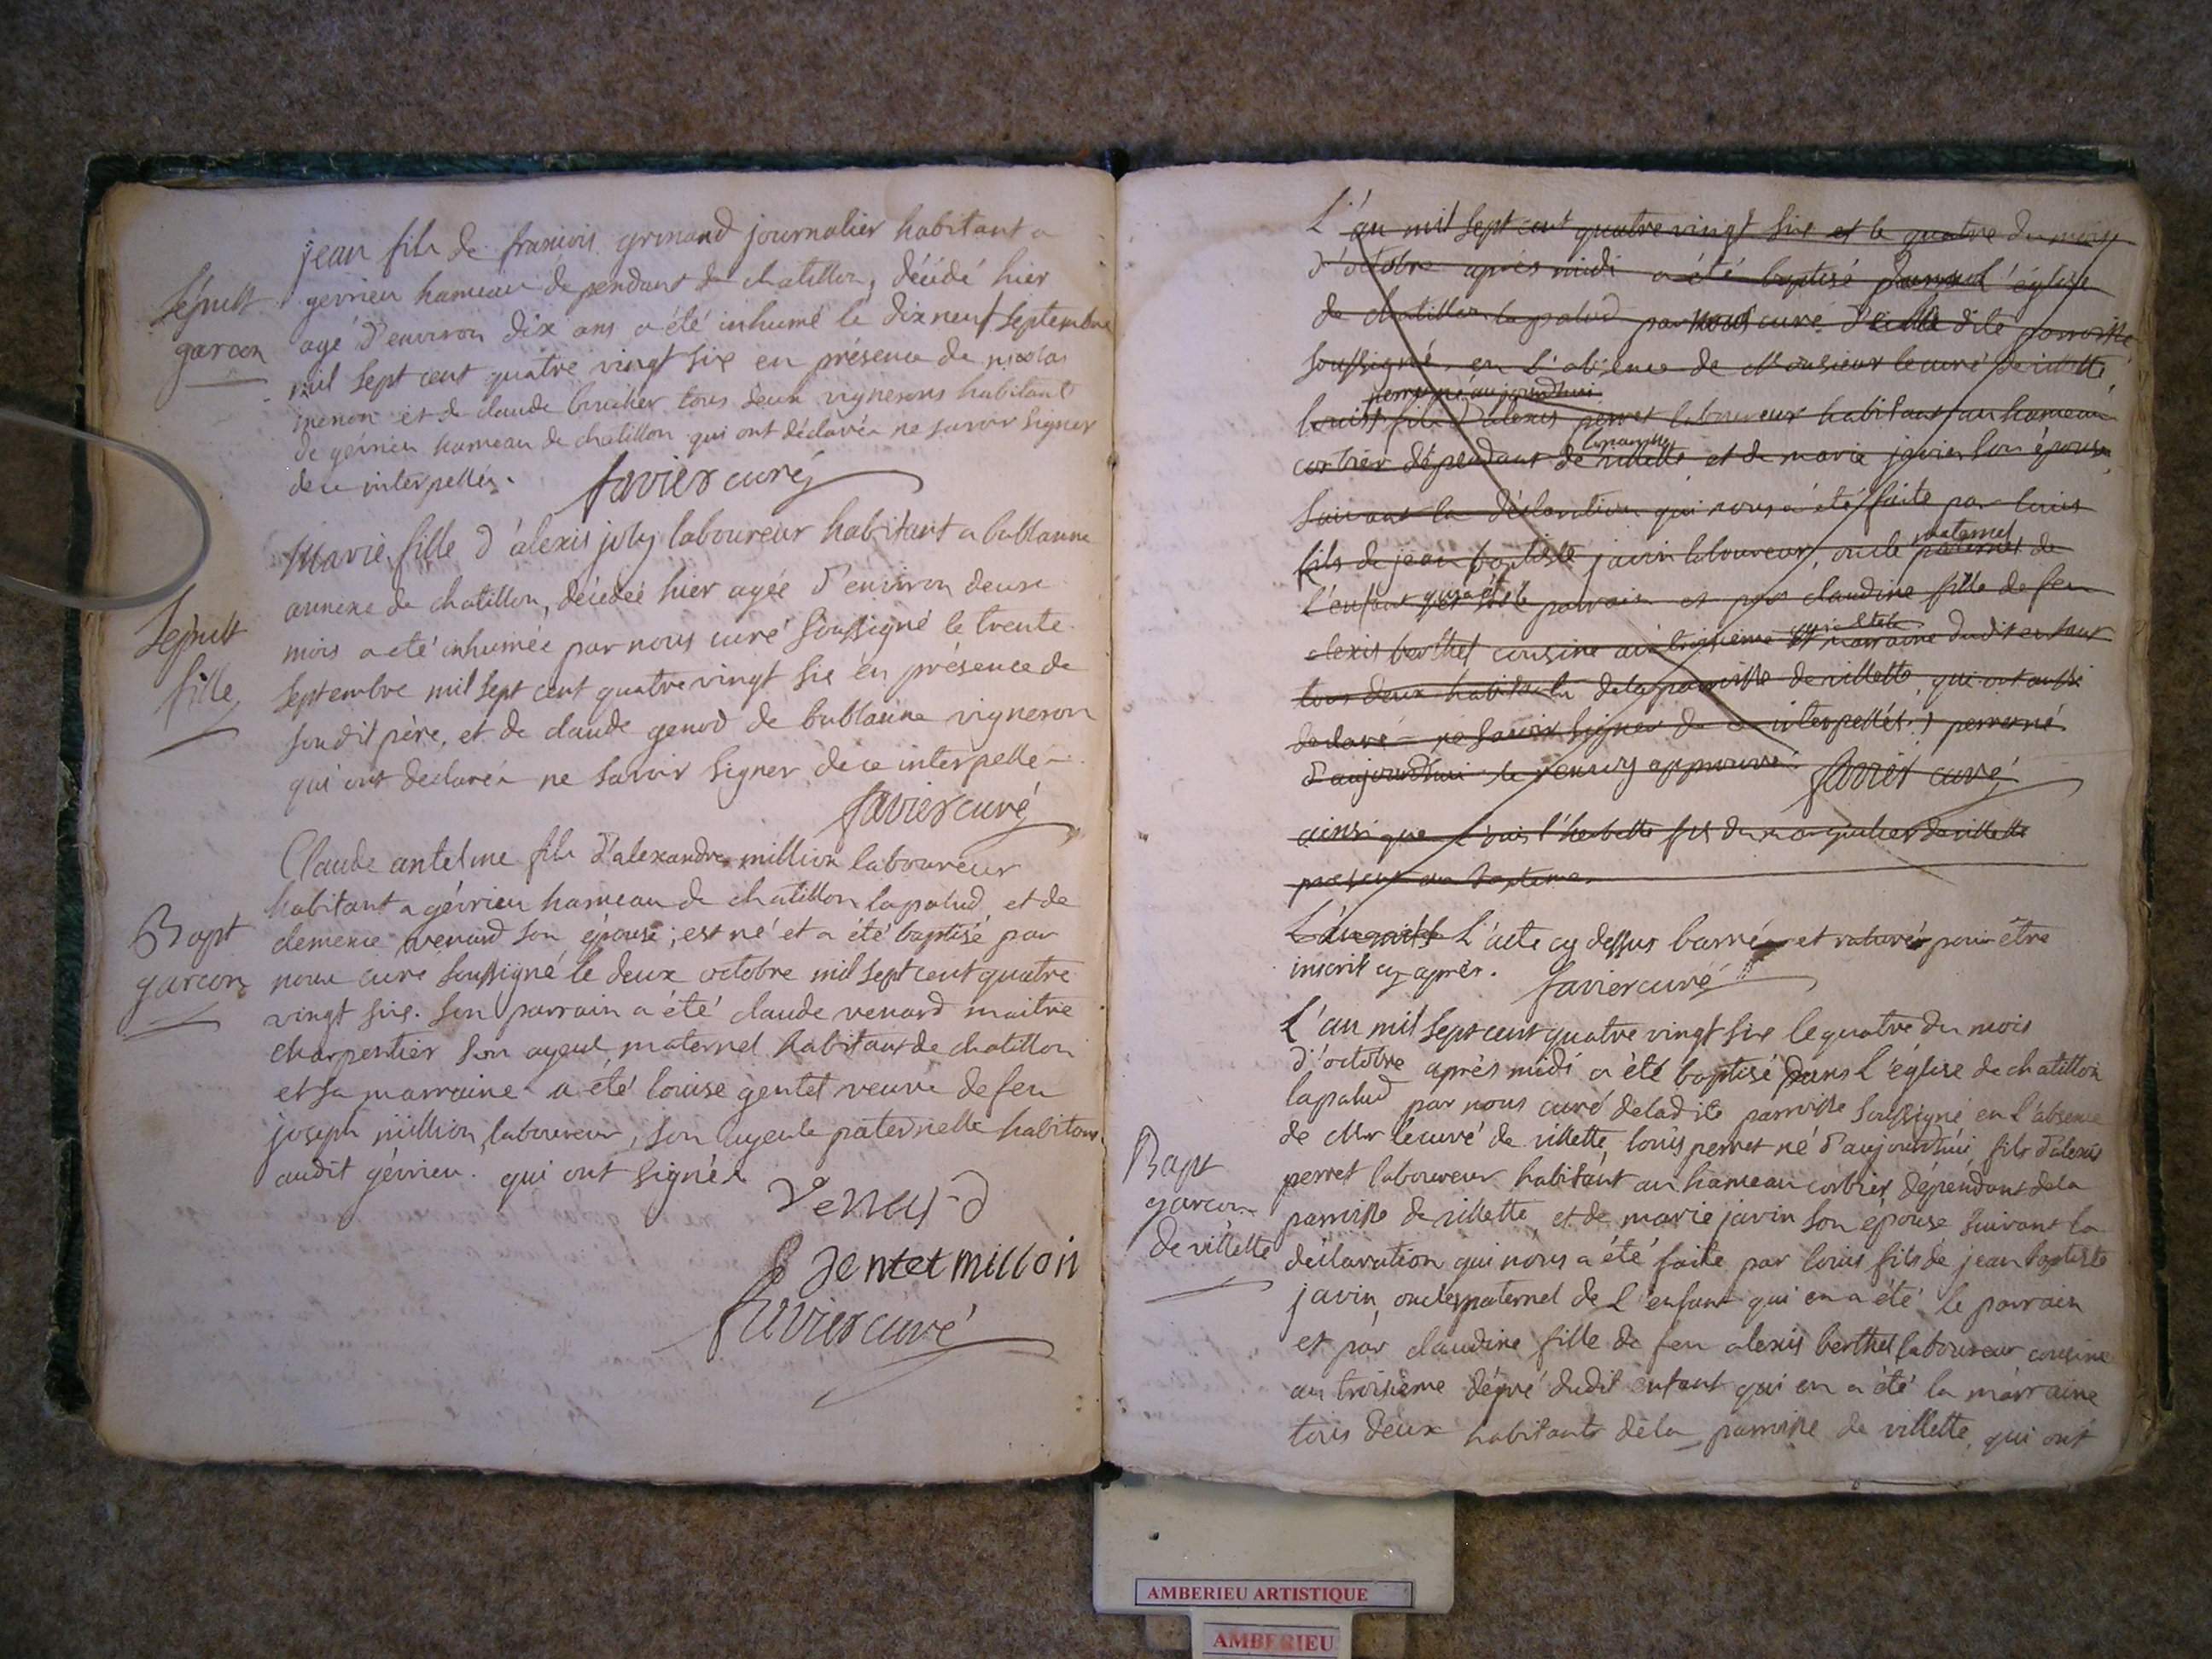 jean fils de francois grinand journalier habitant a
Sepult
garcon
gevrieu hameau dépendant de chatillon, décédé hier
agé d'environ dix ans a été inhumé le dix neuf Septembre
mil Sept cent quatre vingt six en présence de nicolas
menon et de claude tous deux vignerons habitant
de gévrieu hameau de chatillon qui ont déclarés ne savoir signer
de ce interpellés.
favier curé
Sepult
fille
Marie fille d'alexis joly laboureur habitant a bublanne
annexe de chatillon, décédeé hier agée d'environ deux
mois a eté inhumée par nous curé soussigné le trente
septembre mil sept cent quatre vingt six en présence de
sondit père, et de claude genod de bublanne vigneron
qui ont declarés ne savoir signer de ce interpellés
favier curé
Bapt
garcon
Claude antelme fils d'alexandre million laboureur
habitant a gévrieu hameau de chatillon lapalud et de
clemence venard son épouse, est né et a été baptisé par
nous curé soussigné le deux octobre mil sept cent quatre
vingt six. son parrain a été claude venard maitre
charpentier son ayeul maternel habitant de chatillon
et sa marraine a été louise gentet veuve de feu
joseph million laboureur, son ayeule paternelle habitant
audit gévrieu. qui ont signés
venard
gentet million
favier curé
L'an mil sept cent quatre vingt six et le quatre du mois
d'octobre après midi a été baptisé dans l'église
de chatillon lapalud par nous curé dite parroisse
soussigné, en l'absence de Monsieur le curé de villette,
perret né aujourdhui
louis fils d'alexis perret laboureur habitant au hameau
corbier dépendant de villette et de marie javin son épouse,
suivant la déclaration qui nous a été faite par louis
maternel
fils de jean baptiste javin laboureur, oncle paternel de
l'enfant qui a été parrain et par claudine fille de feu
alexis berthet cousine au troisieme marraine dudit enfant
tous deux habitants de la parroisse de villette, qui ont aussi
declaré ne savoir signer de ce interpellés.
d'aujourdhui le renvoy approuvé. favier curé
ainsi que louis l'herbette fils du marguilier de villette
présent au baptême.
L'acte cy dessus barré et raturé pour être
inscrit cy après. favier curé
Bapt
garcon
de villette
L'an mil sept cent quatre vingt six le quatre du mois
d'octobre après midi a été baptisé dans l'église de chatillon
lapalud par nous curé de ladite parroisse soussigné en l'absence
de Mr le curé de villette, louis perret né d'aujourdhui, fils d'alexis
perret laboureur habitant au hameau corbier, dépendant de la
parroisse de villette et de marie javin son épouse suivant la
déclaration qui nous a été faite par louis fils de jean baptiste
javin, oncle maternel de l'enfant qui en a été le parrain
et par claudine fille de feu alexis berthet laboureur cousine
au troisieme dégré dudit enfant qui en a été la marraine
tous deux habitants de la parroisse de villette, qui ont
AMBERIEU ARTISTIQUE
AMBERIEU